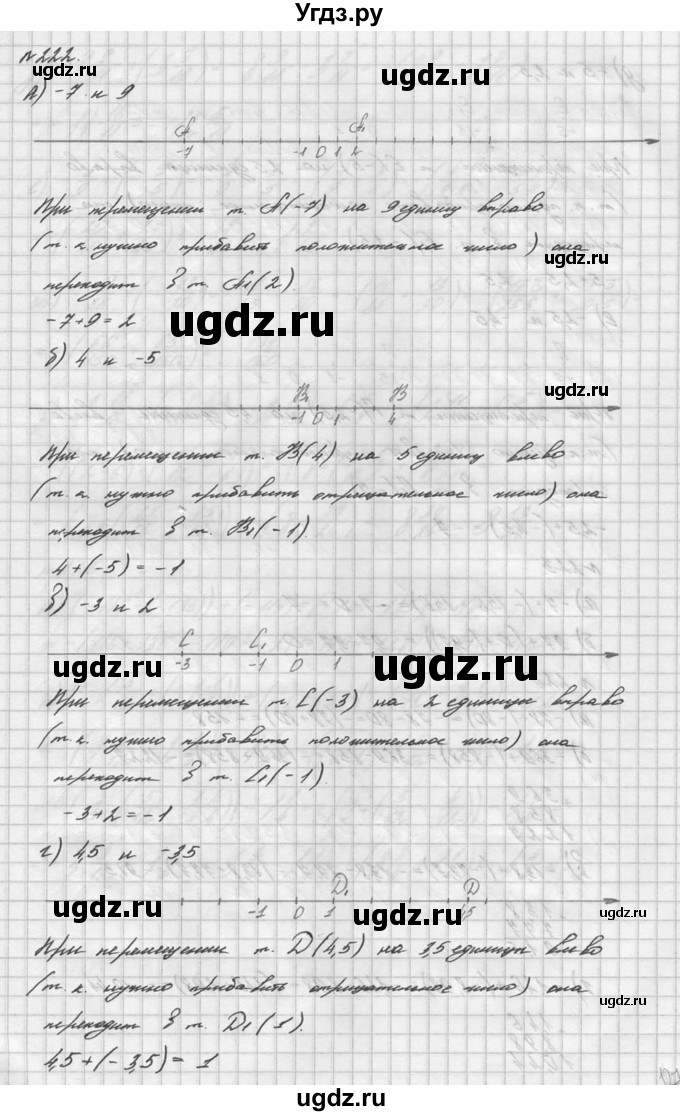 Угдз.ру
№222.
ugdz.ru ugdz.ru
А) -7 и 9
A A₁
-7 -1 0 1 2
При перемещении т. A(-7) на 9 единиц вправо
(т.к. нужно прибавить положительное число) она
ugdz.ru
переходит в т. A₁(2).
-7+9=2
ugdz.ru
б) 4 и -5
ugdz.ru
B₁ B
-1 0 1 4
При перемещении т. B(4) на 5 единиц влево
(т.к. нужно прибавить отрицательное число) она
переходит в т. B₁(-1).
4+(-5)=-1
в) -3 и 2
C C₁
-3 -1 0 1
ugdz.ru ugdz.ru
При перемещении т. C(-3) на 2 единицы вправо
(т.к. нужно прибавить положительное число) она
ugdz.ru
переходит в т. C₁(-1).
-3+2=-1
г) 4,5 и -3,5
D₁ D
-1 0 1 4,5
ugdz.ru ugdz.ru
При перемещении т. D(4,5) на 3,5 единицы влево
(т.к. нужно прибавить отрицательное число) она
ugdz.ru
переходит в т. D₁(1).
4,5+(-3,5)=1
ugdz.ru ugdz.ru